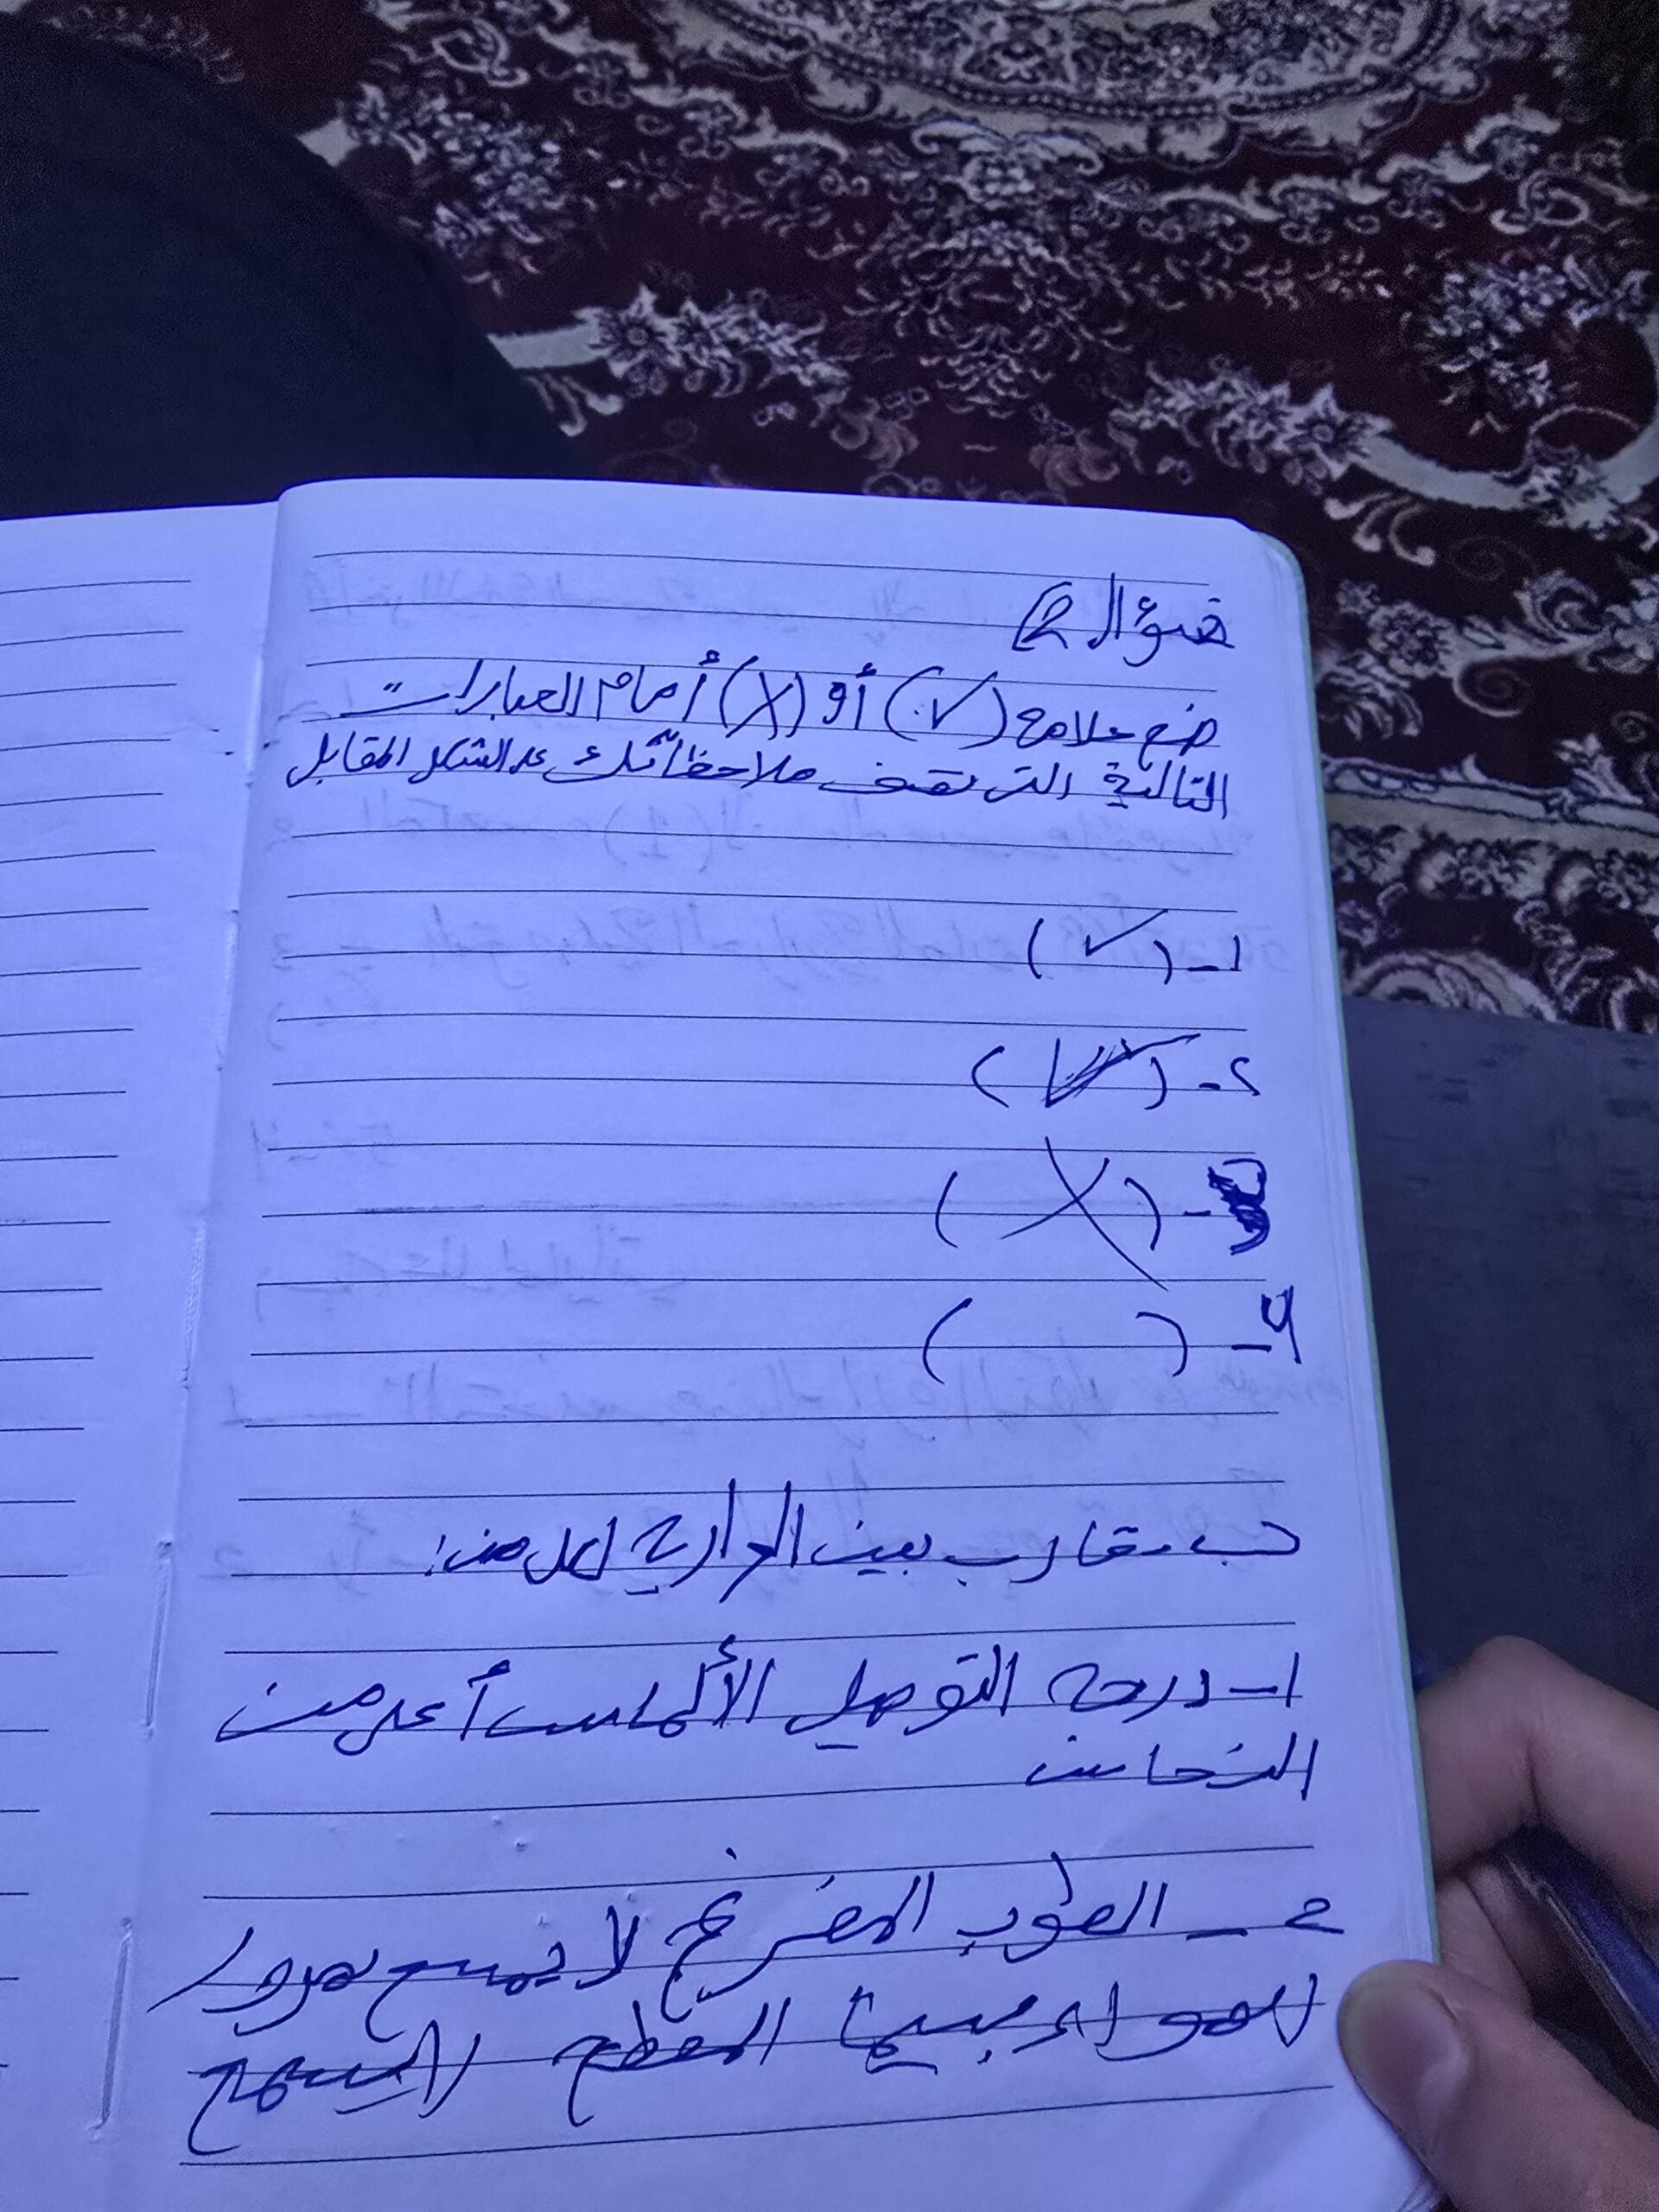 سؤال 2
ضع علامة (✓) أو (X) أمام العبارات
التالية التي تصف ملاحظاتك على الشكل المقابل
1- (✓)
2- (✓)
3- (X)
4- ( )
ب- قارن بين الحرارية لكل من:
1- درجة التوصيل الألماس أعلى من
النحاس
2- الطوب المفرغ لا يسمح بمرور
الهواء بينما المصمت يسمح